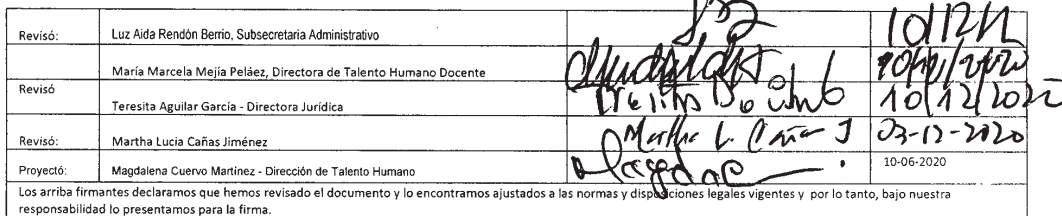 Revisó: Luz Aida Rendón Berrio, Subsecretaria Administrativo
María Marcela Mejía Peláez, Directora de Talento Humano Docente 10/12/2020
Revisó
Teresita Aguilar García - Directora Jurídica 10/12/2020
Revisó: Martha Lucia Cañas Jiménez Martha L. Cañas J 03-12-2020
Proyectó: Magdalena Cuervo Martínez - Dirección de Talento Humano 10-06-2020
Los arriba firmantes declaramos que hemos revisado el documento y lo encontramos ajustados a las normas y disposiciones legales vigentes y por lo tanto, bajo nuestra
responsabilidad lo presentamos para la firma.